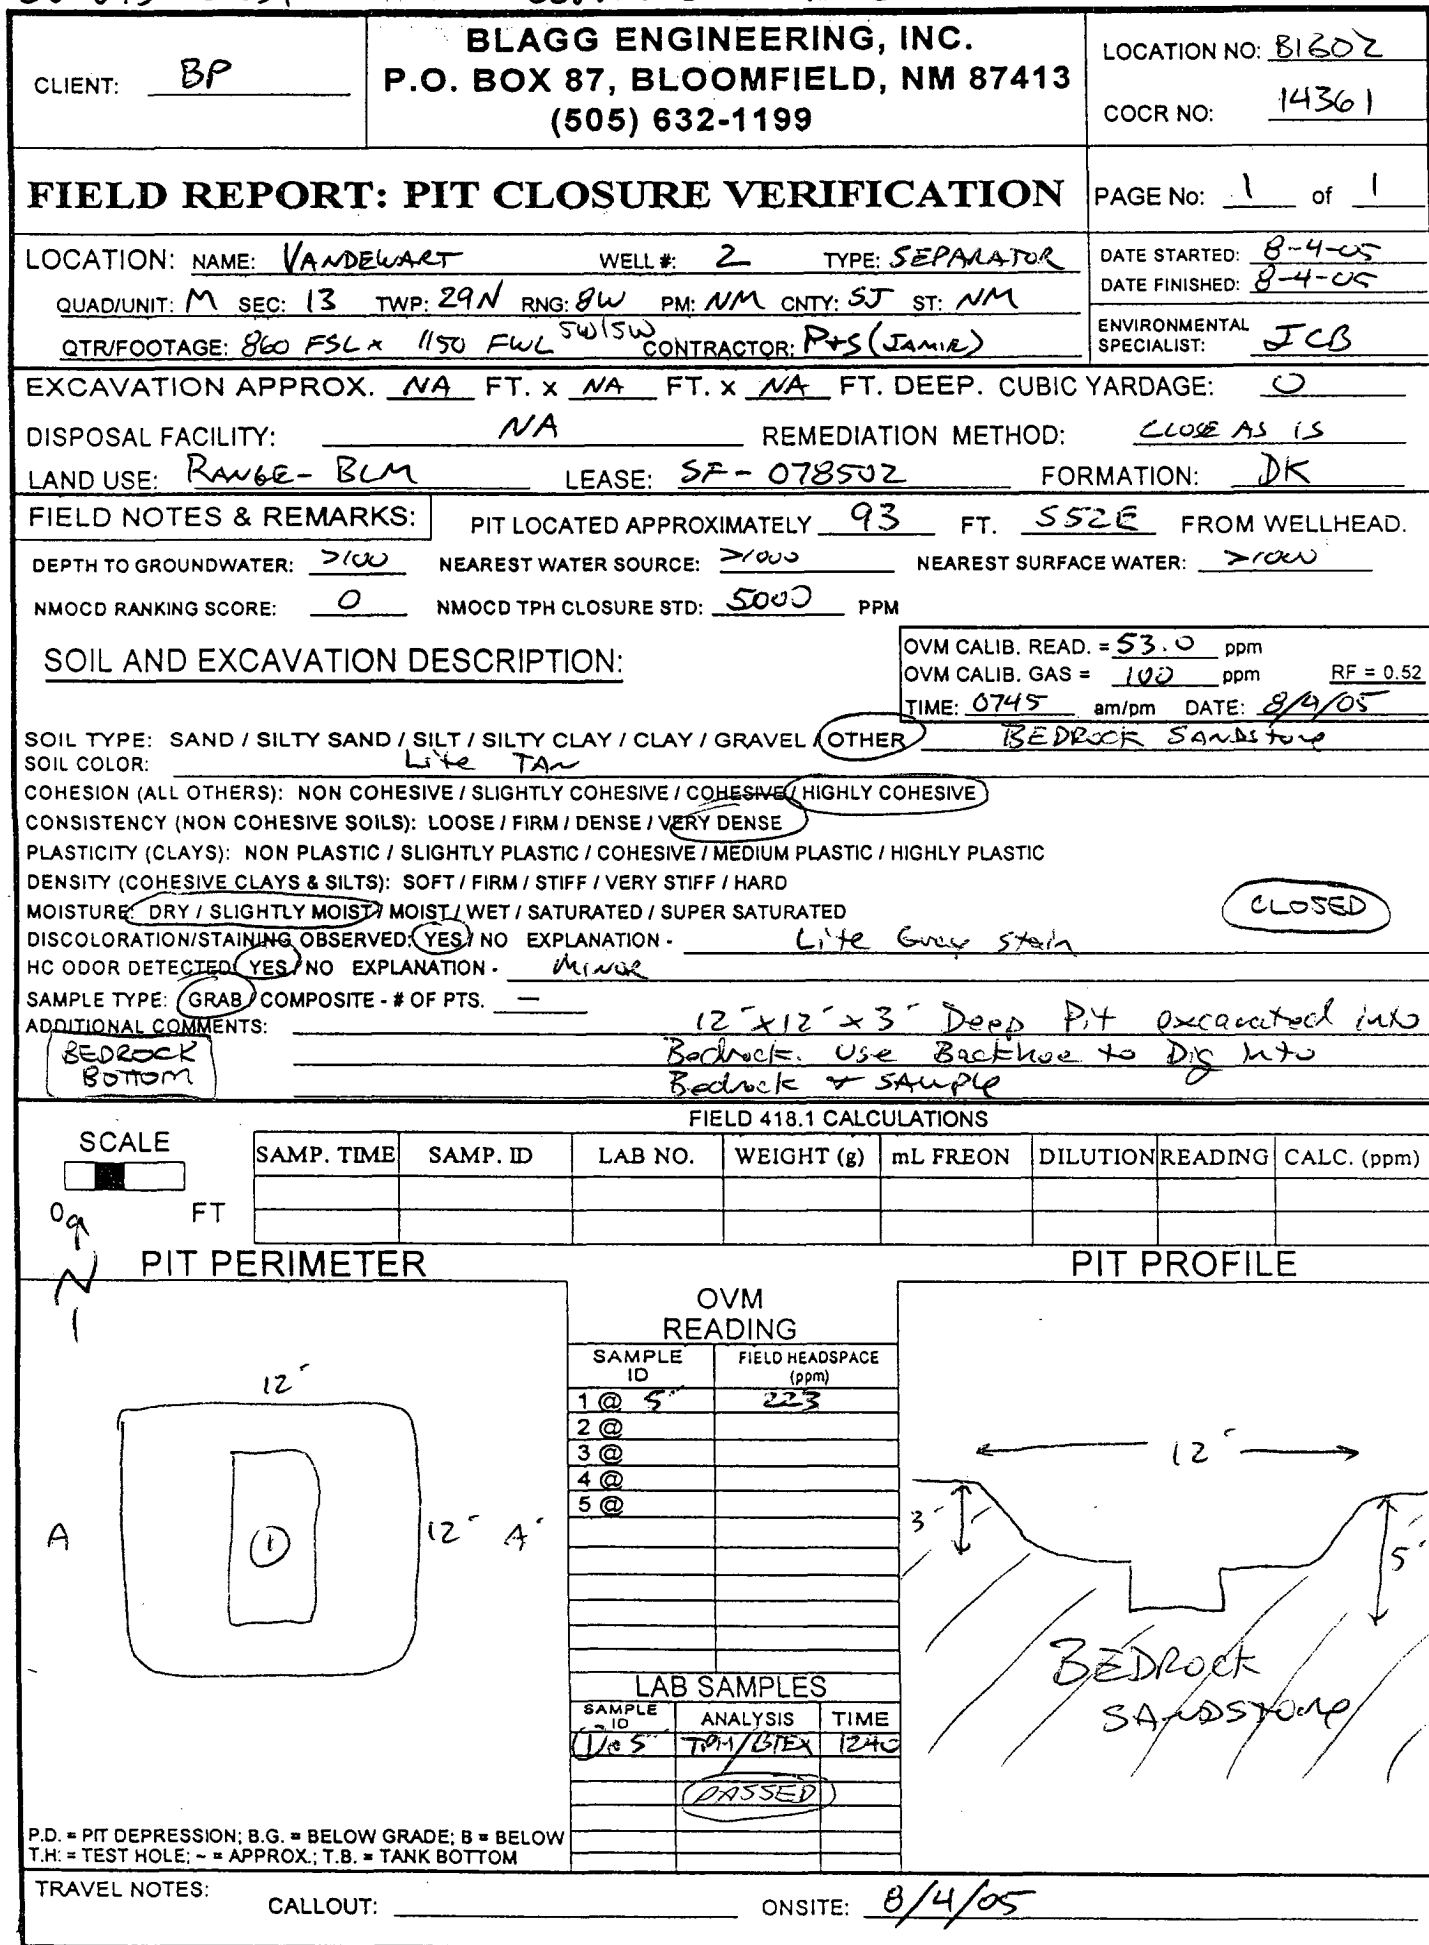 BLAGG ENGINEERING, INC.
CLIENT: BP
P.O. BOX 87, BLOOMFIELD, NM 87413
(505) 632-1199
LOCATION NO: B1602
COCR NO: 14361
FIELD REPORT: PIT CLOSURE VERIFICATION
PAGE No: 1 of 1
LOCATION: NAME: VANDEWART WELL #: 2 TYPE: SEPARATOR
QUAD/UNIT: M SEC: 13 TWP: 29N RNG: 8W PM: NM CNTY: SJ ST: NM
QTR/FOOTAGE: 860 FSL x 1150 FWL SW/SW CONTRACTOR: P+S (JAMIE)
DATE STARTED: 8-4-05
DATE FINISHED: 8-4-05
ENVIRONMENTAL SPECIALIST: JCB
EXCAVATION APPROX. NA FT. x NA FT. x NA FT. DEEP. CUBIC YARDAGE: 0
DISPOSAL FACILITY: NA REMEDIATION METHOD: CLOSE AS IS
LAND USE: RANGE - BLM LEASE: SF - 078502 FORMATION: DK
FIELD NOTES & REMARKS: PIT LOCATED APPROXIMATELY 93 FT. S52E FROM WELLHEAD.
DEPTH TO GROUNDWATER: >100 NEAREST WATER SOURCE: >1000 NEAREST SURFACE WATER: >1000
NMOCD RANKING SCORE: 0 NMOCD TPH CLOSURE STD: 5000 PPM
SOIL AND EXCAVATION DESCRIPTION:
OVM CALIB. READ. = 53.0 ppm
OVM CALIB. GAS = 100 ppm RF = 0.52
TIME: 0745 am/pm DATE: 8/4/05
SOIL TYPE: SAND / SILTY SAND / SILT / SILTY CLAY / CLAY / GRAVEL / OTHER BEDROCK SANDSTONE
SOIL COLOR: Lite TAN
COHESION (ALL OTHERS): NON COHESIVE / SLIGHTLY COHESIVE / COHESIVE / HIGHLY COHESIVE
CONSISTENCY (NON COHESIVE SOILS): LOOSE / FIRM / DENSE / VERY DENSE
PLASTICITY (CLAYS): NON PLASTIC / SLIGHTLY PLASTIC / COHESIVE / MEDIUM PLASTIC / HIGHLY PLASTIC
DENSITY (COHESIVE CLAYS & SILTS): SOFT / FIRM / STIFF / VERY STIFF / HARD
MOISTURE: DRY / SLIGHTLY MOIST / MOIST / WET / SATURATED / SUPER SATURATED
CLOSED
DISCOLORATION/STAINING OBSERVED: YES / NO EXPLANATION - Lite Gray Stain
HC ODOR DETECTED: YES / NO EXPLANATION - MINOR
SAMPLE TYPE: GRAB / COMPOSITE - # OF PTS. —
ADDITIONAL COMMENTS: 12' x 12' x 3' Deep Pit excavated into
BEDROCK BOTTOM
Bedrock. Use Backhoe to Dig Into
Bedrock & SAMPLE
FIELD 418.1 CALCULATIONS
SCALE
0 FT
SAMP. TIME SAMP. ID LAB NO. WEIGHT (g) mL FREON DILUTION READING CALC. (ppm)
N
PIT PERIMETER
PIT PROFILE
OVM
READING
SAMPLE ID FIELD HEADSPACE (ppm)
1 @ 5' 223
2 @
3 @
4 @
5 @
12'
A
1
12' A'
12'
3'
5'
BEDROCK
SANDSTONE
LAB SAMPLES
SAMPLE ID ANALYSIS TIME
1 @ 5' TPH/BTEX 1240
PASSED
P.D. = PIT DEPRESSION; B.G. = BELOW GRADE; B = BELOW
T.H. = TEST HOLE; ~ = APPROX.; T.B. = TANK BOTTOM
TRAVEL NOTES: CALLOUT: ONSITE: 8/4/05